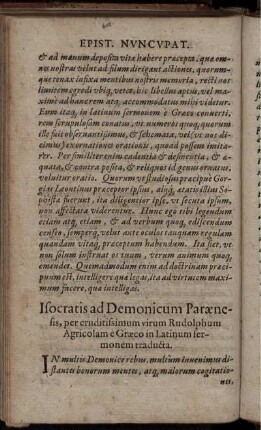 EPIST. NVNCVPAT.
& ad manum deposita vitæ habere præcepta: quæ om-
nes nostras velut ad filum dirigant actiones, quorum-
que tenax infixa mentibus nostris memoria, recti nos
limitem egredi vbiq; vetat. hic libellus aptus, vel ma-
ximè ad hanc rem atq; accommodatus mihi videtur.
Eum itaq; in latinum sermonem è Græco conuerti.
rem scrupulosam conatus, vt numeros quoq; quorum
ille fuit obseruantissimus, & schemata, vel (vt nos di-
cimus) exornationes orationis, quoad possem imita-
rer. Per similiter enim cadentia & desinentia, & æ-
quata, & contra posita, & reliqua id genus ornatus,
voluitur oratio. Quorum vt studiosum præcipuè Gor-
gias Leontinus præceptor ipsius, aliiq; ætatis illius So-
phistæ fuerunt, ita diligentior ipse, vt secuta ipsum,
non affectata viderentur. Hunc ego tibi legendum
etiam atq; etiam, & ad verbum quoq; ediscendum
censeo, semperq; velut ante oculos tanquam regulam
quandam vitæq; præceptum habendum. Ita fiet, vt
non solum instruat os tuum, verum animum quoq;
emendet. Quemadmodum enim ad doctrinam præci-
puum est, intelligere quæ legas, ita ad virtutem maxi-
mum facere, quæ intelligas.
Isocratis ad Demonicum Paræne-
sis, per eruditissimum virum Rudolphum
Agricolam è Græco in Latinum ser-
monem traducta.
IN multis Demonice rebus, multùm inuenimus di-
stantes bonorum mentes, atq; malorum cogitatio-
nes.